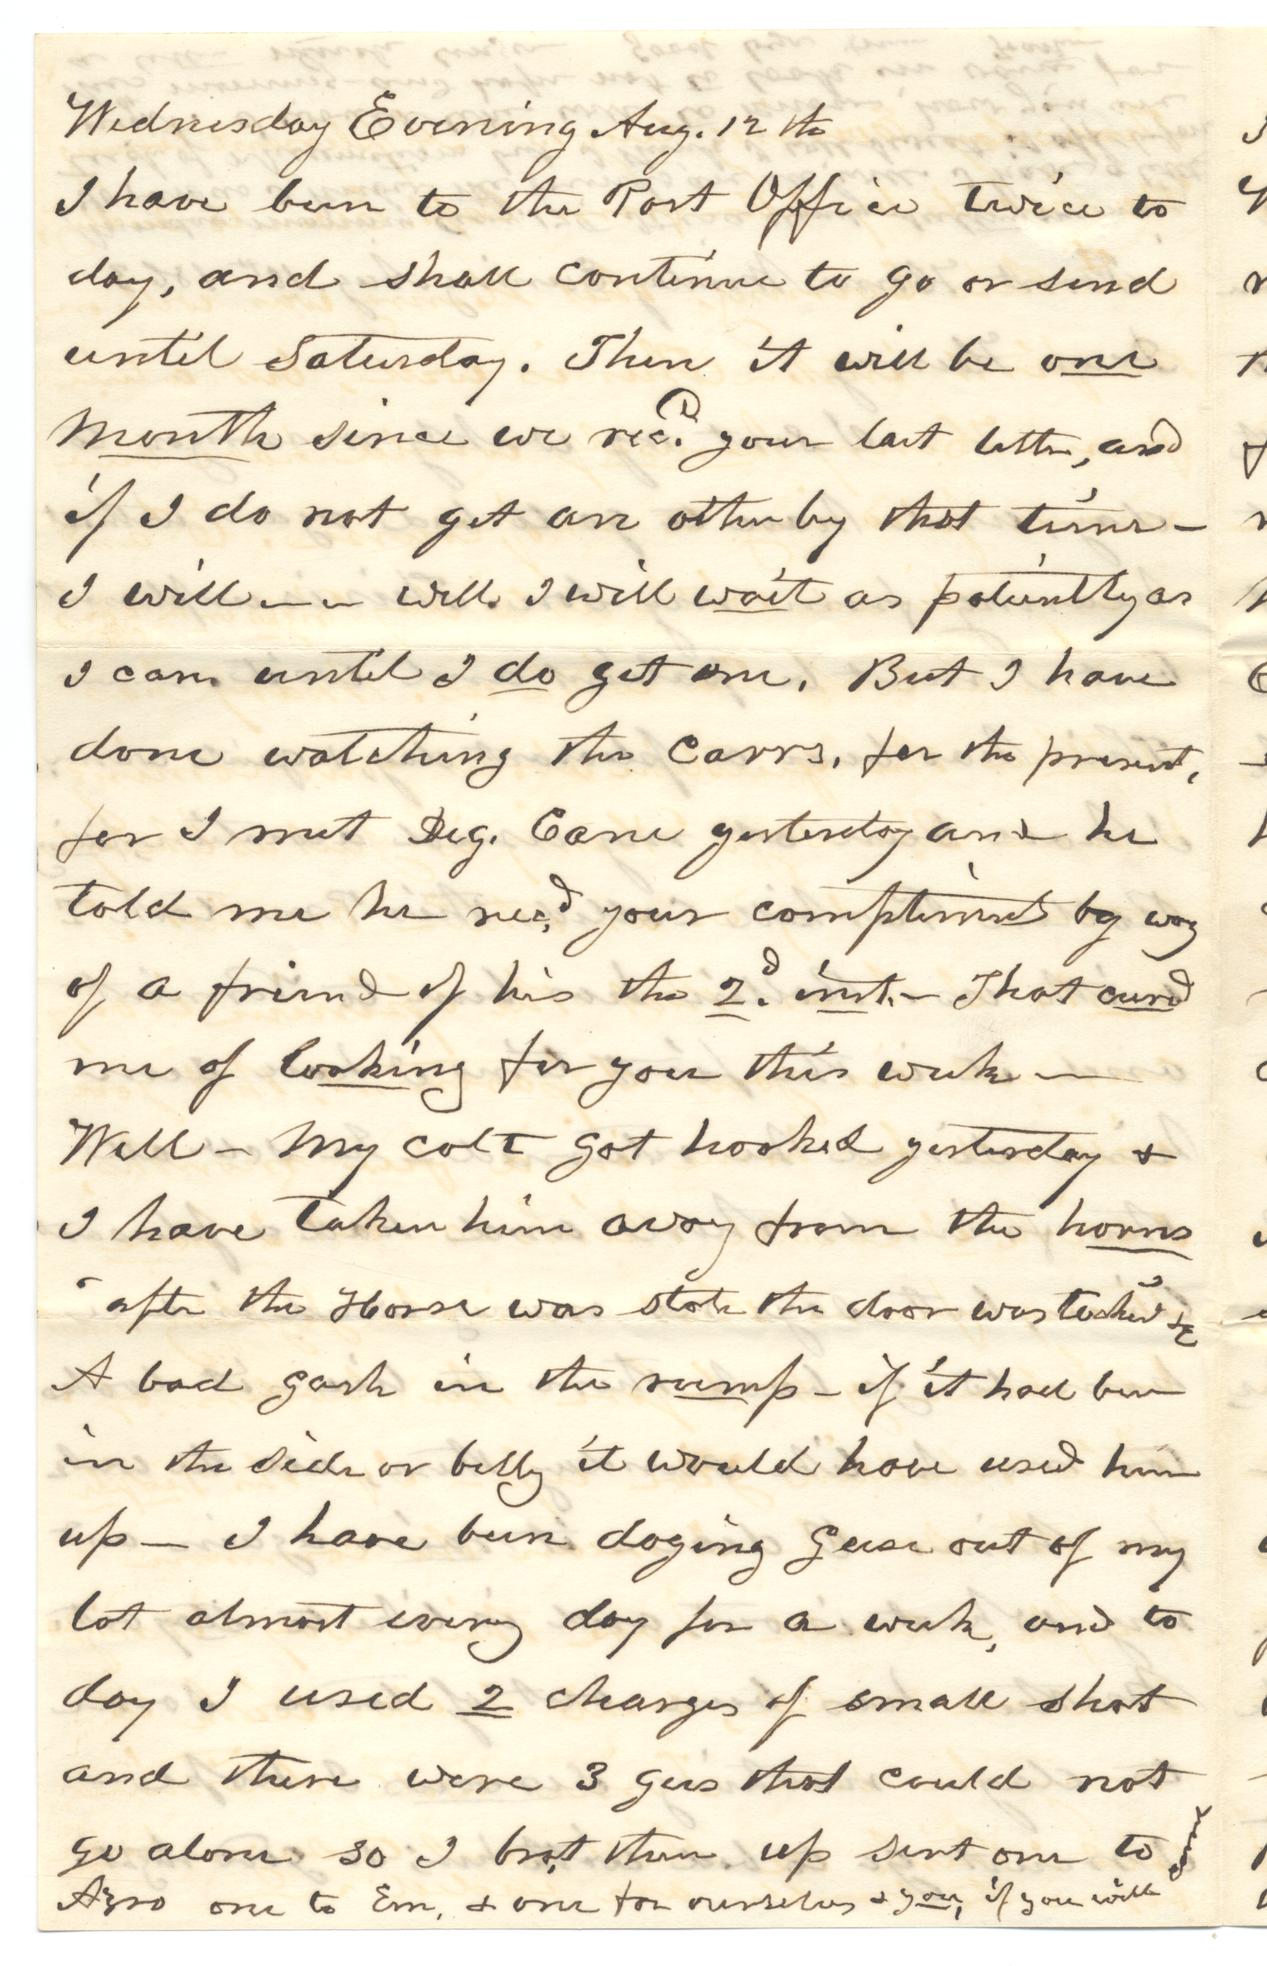 Wednesday Evening Aug. 12th
I have been to the Post Office twice to
day, and shall continue to go or send
until Saturday. Then it will be one
month since we recd. your last letter, and
if I do not get an other by that time —
I will — — well I will wait as patiently as
I can until I do get one. But I have
done watching the Carrs, for the present,
for I met Seg. Cane yesterday and he
told me he recd. your compliments by way
of a friend of his the 2d. inst. — That cured
me of looking for you this week —
Well — My colt got hooked yesterday &
I have taken him away from the horns
"after the Horse was stole the door was locked" &c
A bad gash in the rump — if it had been
in the side or belly it would have used him
up — I have been doging Geese out of my
lot almost every day for a week, and to
day I used 2 charges of small shot
and there were 3 gees that could not
go alone so I brot them up sent one to
Azro one to Em, & one for ourselves & you, if you will
come